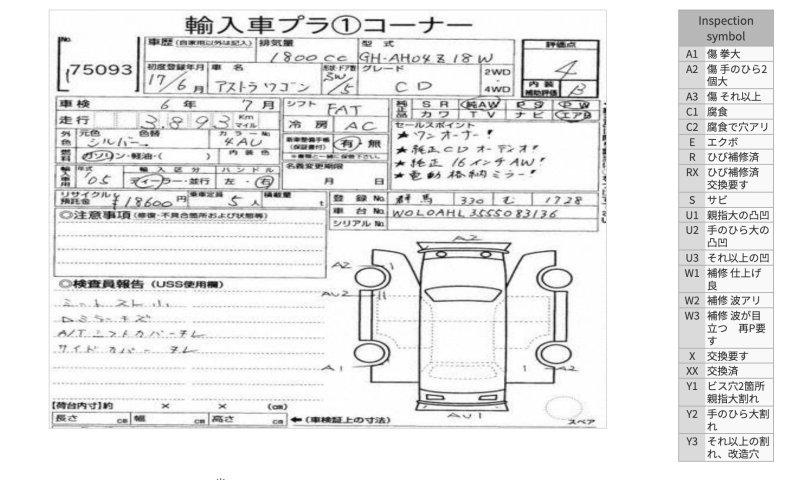 輸入車プラ①コーナー
No. 75093
車歴 (自家用以外は記入) 排気量 1800cc 型式 GH-AH04Z18W
評価点 4
初度登録年月 17/6月 車名 アストラワゴン SW/5 グレード CD 2WD 4WD
内装補助評価 B
車検 6年 7月 シフト FAT
純正品 SR 純AW PS PW
カワ TV ナビ エアB
走行 3,893 Km マイル 冷房 AC
セールスポイント
外色 元色 シルバー 色替 カラーNo. 4AU
有・無
★ワンオーナー!
★純正CDオーディオ!
燃料 ガソリン・軽油・( ) 内装色
★純正16インチAW!
名義変更期限 月 日
★電動格納ミラー!
年式 '05 輸入区分 ディーラー・並行 ハンドル 左・右
リサイクル預託金 ¥18600円 乗車定員 5人 積載量 t
登録No. 群馬 330 む 1728
車台No. W0L0AHL3555083136
シリアルNo.
◎注意事項 (修復・不具合箇所および状態等)
◎検査員報告 (USS使用欄)
A2
A2
AU2
Dミラーキズ
A/Tシフトカバーキレ
サイドカバーキレ
A1
A2
AU1
スペア
【荷台内寸】約 × × (cm)
長さ cm 幅 cm 高さ cm ←(車検証上の寸法)
Inspection symbol
A1 傷 拳大
A2 傷 手のひら2個大
A3 傷 それ以上
C1 腐食
C2 腐食で穴アリ
E エクボ
R ひび補修済
RX ひび補修済 交換要す
S サビ
U1 親指大の凸凹
U2 手のひら大の凸凹
U3 それ以上の凹
W1 補修 仕上げ良
W2 補修 波アリ
W3 補修 波が目立つ 再P要す
X 交換要す
XX 交換済
Y1 ビス穴2箇所 親指大割れ
Y2 手のひら大割れ
Y3 それ以上の割れ、改造穴